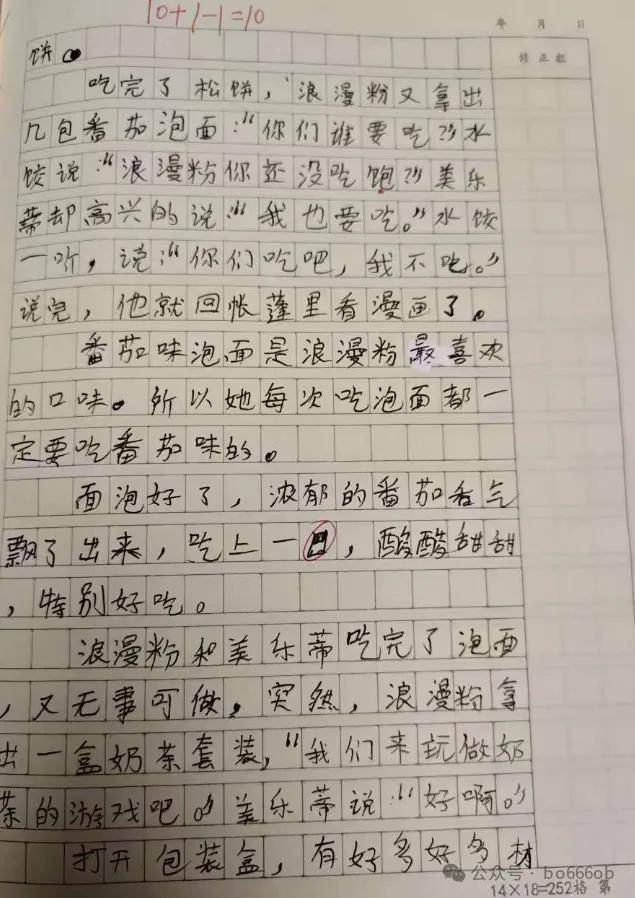 10+1-1=10
年 月 日
修正栏
饼。
吃完了松饼，浪漫粉又拿出
几包番茄泡面：“你们谁要吃？”水
饺说：“浪漫粉你还没吃饱？”美乐
蒂却高兴的说：“我也要吃。”水饺
一听，说：“你们吃吧，我不吃。”
说完，他就回帐蓬里看漫画了。
番茄味泡面是浪漫粉最喜欢
的口味。所以她每次吃泡面都一
定要吃番茄味的。
面泡好了，浓郁的番茄香气
飘了出来，吃上一口，酸酸甜甜
，特别好吃。
浪漫粉和美乐蒂吃完了泡面
，又无事可做。突然，浪漫粉拿
出一盒奶茶套装，“我们来玩做奶
茶的游戏吧。”美乐蒂说：“好啊。”
打开包装盒，有好多好多材
公众号·bo666ob
14×18=252格 第